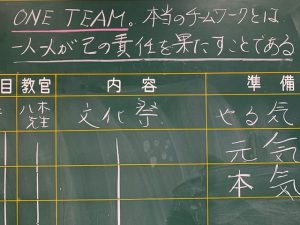 ONE TEAM。本当のチームワークとは
一人一人が己の責任を果たすことである
目 教官 内容 準備
八木先生 文化祭 やる気
元気
本気